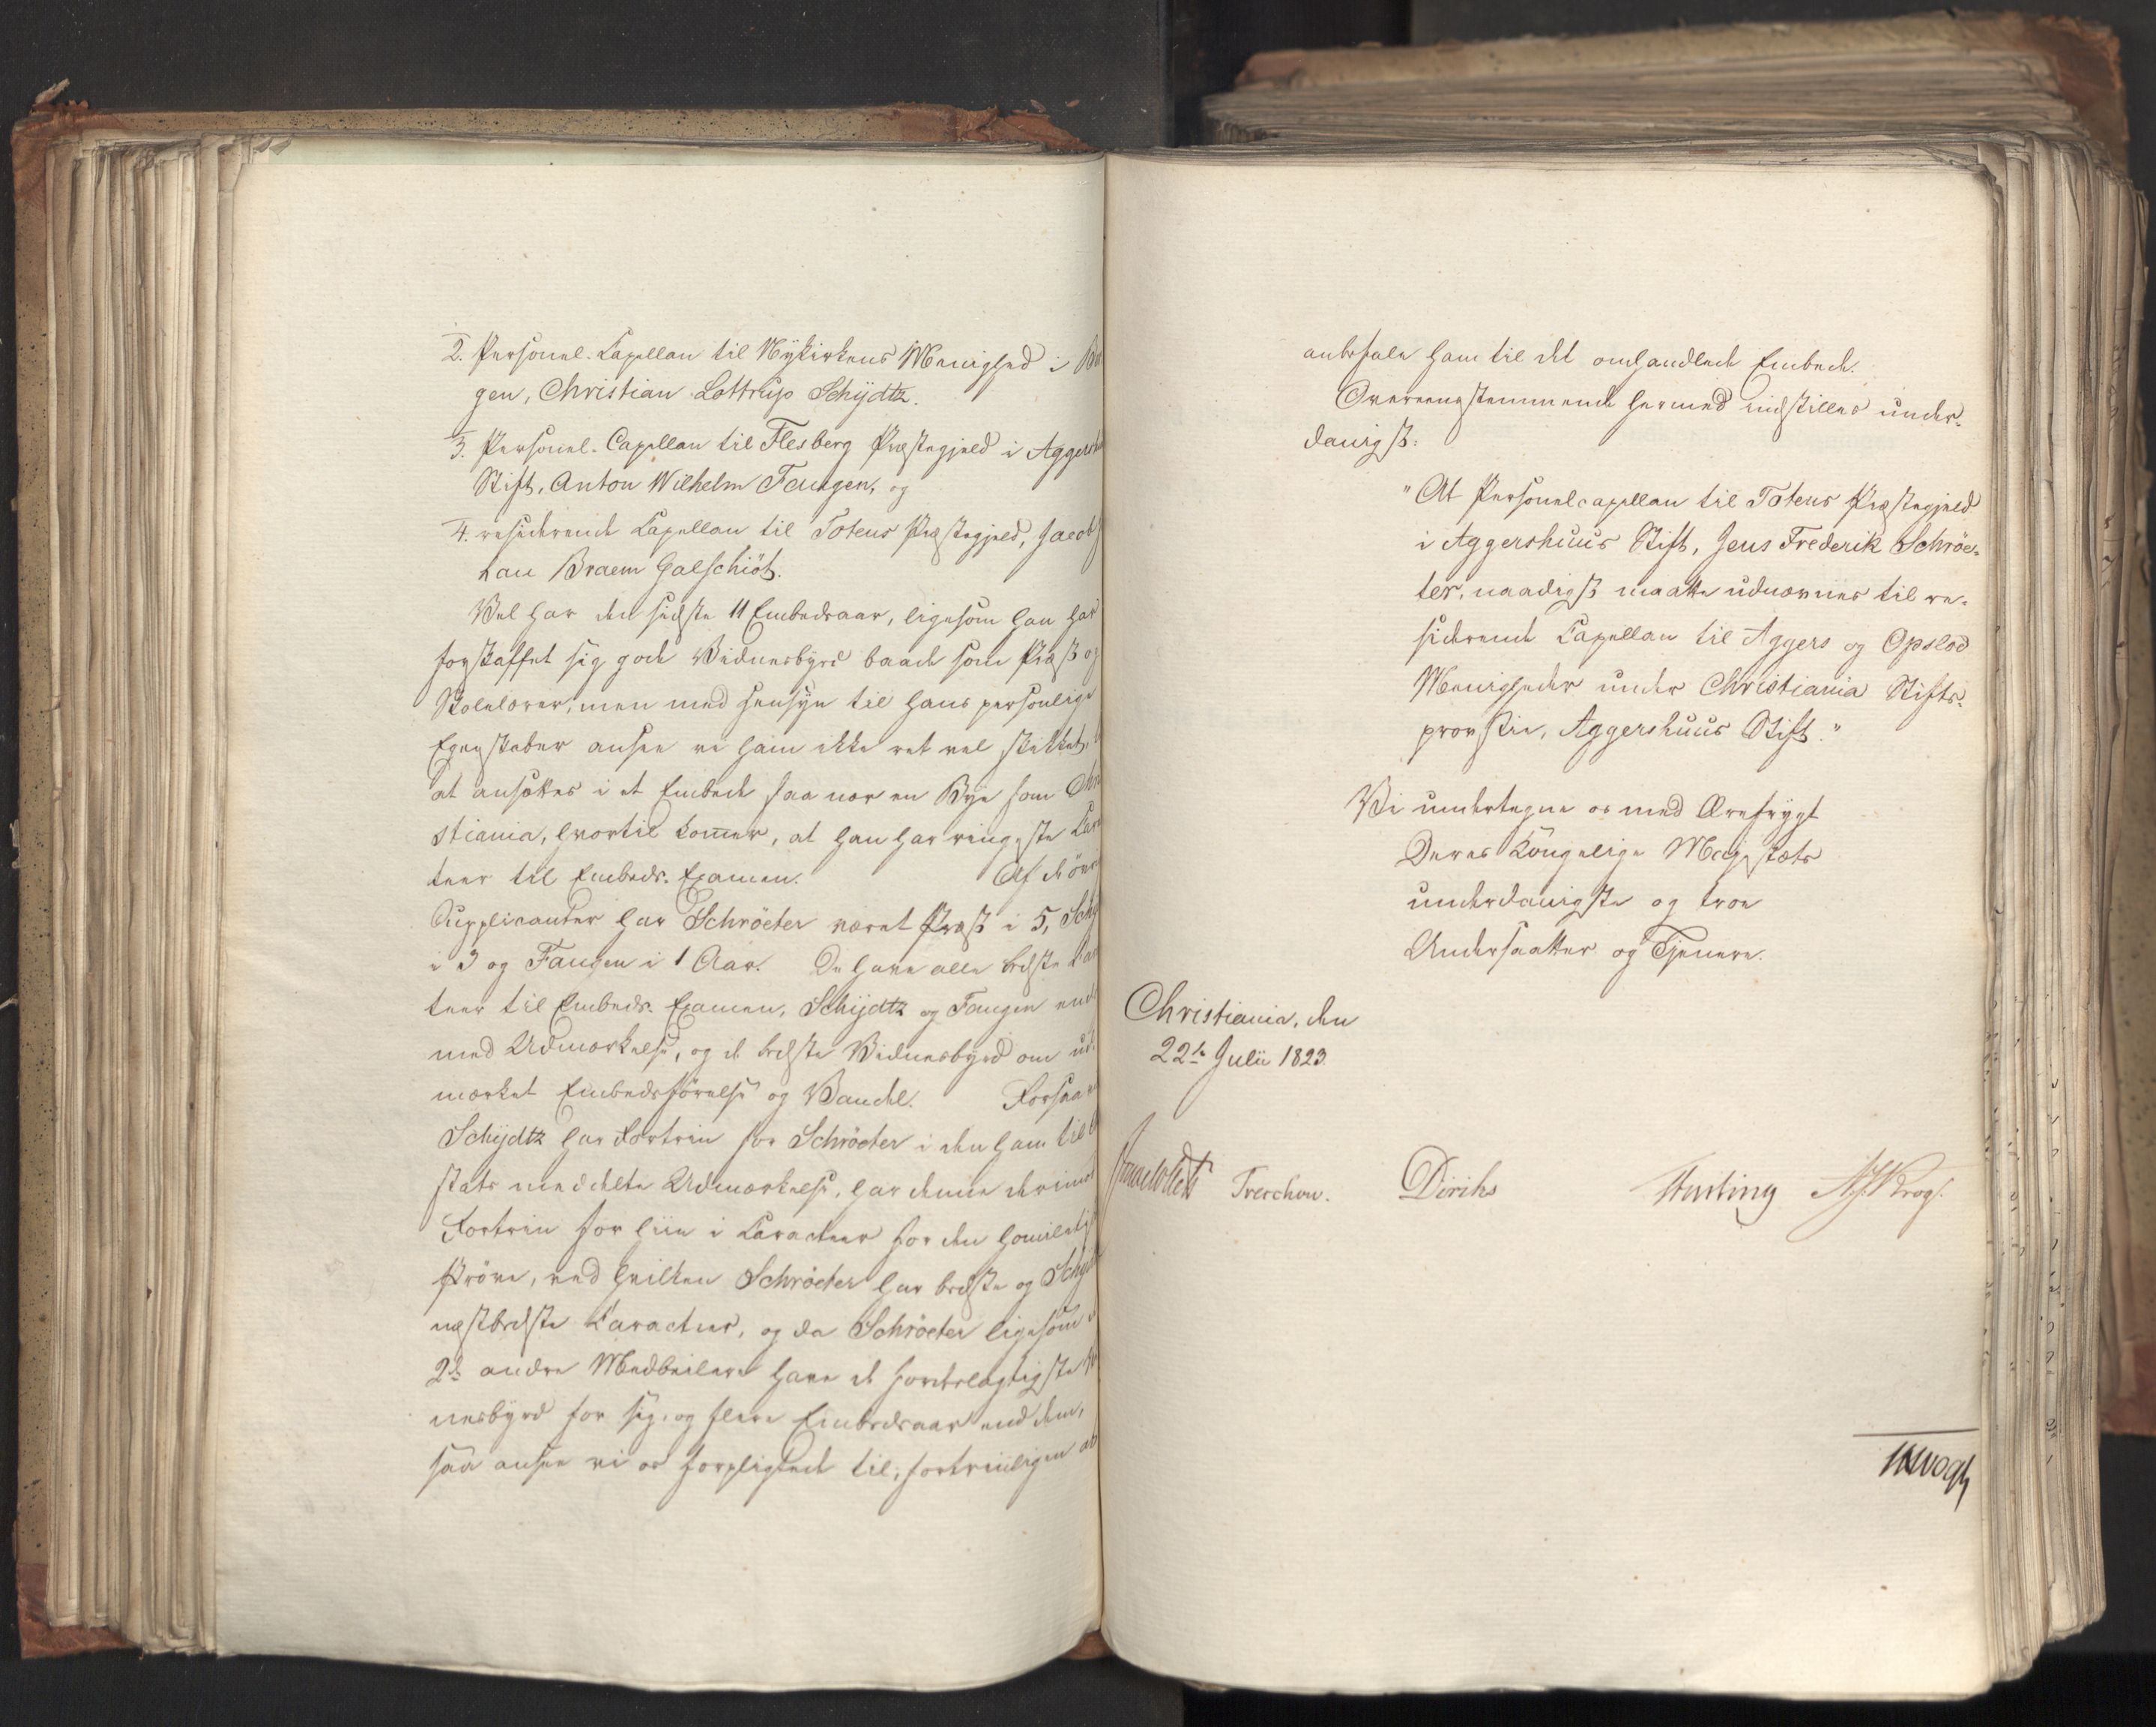 2. Personel-Capellan til Nykirkens Menighed i Ber
gen, Christian Lottrup Schÿdtz.
3. Personel-Capellan til Flesberg Præstegjeld i Aggersh
Stift, Anton Wilhelm Fangen, og
4. residerende Capellan til Totens Præstegjeld, Jacob
Braem Galschiöt.
Vel har den sidste 11 Embedsaar, ligesom han har
forskaffet sig gode Vidnesbyrd baade som Præst og
Skolelærer, men med Hensyn til hans personlige
Egenskaber ansee vi ham ikke ret vel skikket,
at ansættes i et Embede saa nær en Bye som Chri
stiania, hvortil kommer, at han har ringeste Carac
teer til Embeds-Examen. Af de övr
Supplicanter har Schröeter været Præst i 5, Schÿ
i 3 og Fangen i 1 Aar. De have alle bedste Carac
teer til Embeds-Examen, Schÿdtz og Fangen end
med Udmærkelse, og de bedste Vidnesbyrd om ud-
mærket Embedsförelse og Vandel. Forsaavidt
Schÿdtz har Fortrin for Schröeter i den ham til
stats meddelte Udmærkelse, har denne derimod
Fortrin for hiin i Caracteer for den homiletiske
Pröve, ved hvilken Schröeter har bedste og Schÿdtz
næstbedste Caracteer, og da Schröeter ligesom
2de andre Medbeilere have de fordelagtigste Vid
nesbyrd for sig, og flere Embedsaar end dem,
saa ansee vi os forpligtede til, fortrinligen at
anbefale ham til det omhandlede Embede.
Overeensstemmende hermed indstilles under-
danigst:
"At Personelcapellan til Totens Præstegjeld
i Aggershuus Stift, Jens Frederik Schröe-
ter, naadigst maatte udnævnes til re-
siderende Capellan til Aggers og Opslod
Menigheder under Christiania Stifts-
provstie, Aggershuus Stift."
Vi undertegne os med Ærefrygt
Deres Kongelige Majestæts
underdanigste og troe
Undersaatter og Tjenere.
Christiania, den
22de Julii 1823.
Treschow. Diriks Motzfeldt Krog.